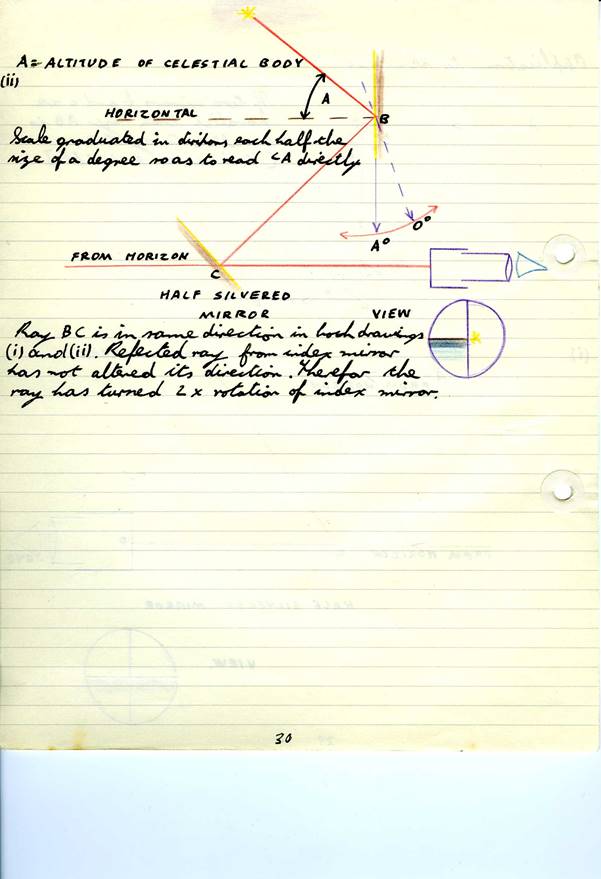 A = ALTITUDE OF CELESTIAL BODY
(ii)
A
HORIZONTAL
B
Scale graduated in divitons each half the
size of a degree so as to read ∠A directly
A°
O°
FROM HORIZON
C
HALF SILVERED
MIRROR
VIEW
Ray BC is in same direction in both drawings
(i) and (ii). Refected ray from index mirror
has not altered its direction. Therefor the
ray has turned 2 x rotation of index mirror.
30